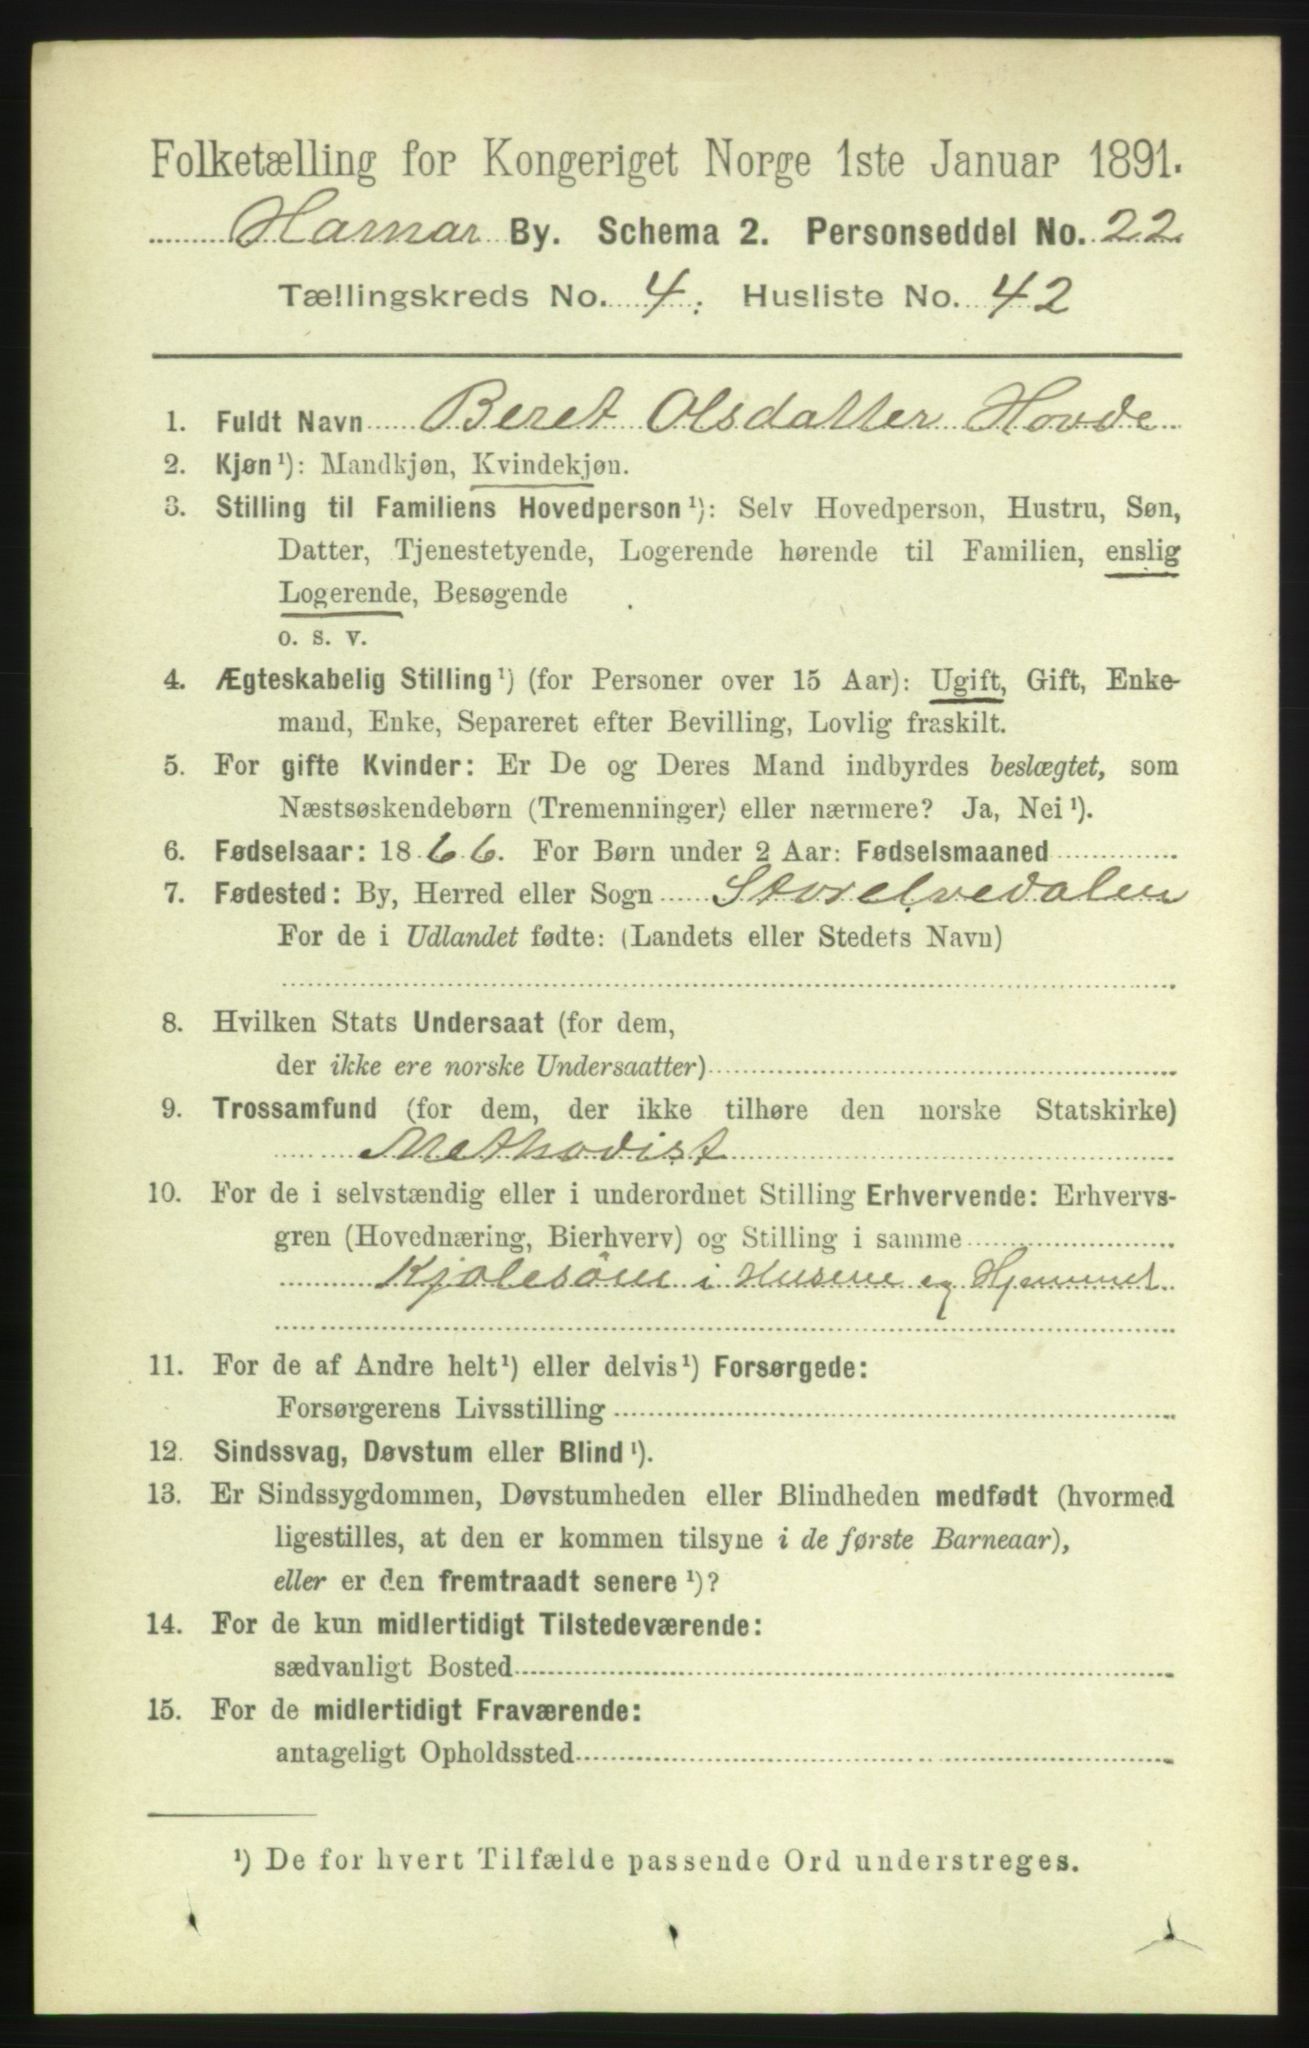 Folketælling for Kongeriget Norge 1ste Januar 1891.
Hamar By. Schema 2. Personseddel No. 22
Tællingskreds No. 4. Husliste No. 42
1. Fuldt Navn Beret Olsdatter Hovde
2. Kjøn ¹): Mandkjøn, Kvindekjøn.
3. Stilling til Familiens Hovedperson ¹): Selv Hovedperson, Hustru, Søn,
Datter, Tjenestetyende, Logerende hørende til Familien, enslig
Logerende, Besøgende
o. s. v.
4. Ægteskabelig Stilling ¹) (for Personer over 15 Aar): Ugift, Gift, Enke-
mand, Enke, Separeret efter Bevilling, Lovlig fraskilt.
5. For gifte Kvinder: Er De og Deres Mand indbyrdes beslægtet, som
Næstsøskendebørn (Tremenninger) eller nærmere? Ja, Nei ¹).
6. Fødselsaar: 1866. For Børn under 2 Aar: Fødselsmaaned
7. Fødested: By, Herred eller Sogn Storelvedalen
For de i Udlandet fødte: (Landets eller Stedets Navn)
8. Hvilken Stats Undersaat (for dem,
der ikke ere norske Undersaatter)
9. Trossamfund (for dem, der ikke tilhøre den norske Statskirke)
Methodist
10. For de i selvstændig eller i underordnet Stilling Erhvervende: Erhvervs-
gren (Hovednæring, Bierhverv) og Stilling i samme
Kjolesöm i Husene og Hjemmet
11. For de af Andre helt ¹) eller delvis ¹) Forsørgede:
Forsørgerens Livsstilling
12. Sindssvag, Døvstum eller Blind ¹).
13. Er Sindssygdommen, Døvstumheden eller Blindheden medfødt (hvormed
ligestilles, at den er kommen tilsyne i de første Barneaar),
eller er den fremtraadt senere ¹)?
14. For de kun midlertidigt Tilstedeværende:
sædvanligt Bosted
15. For de midlertidigt Fraværende:
antageligt Opholdssted
¹) De for hvert Tilfælde passende Ord understreges.